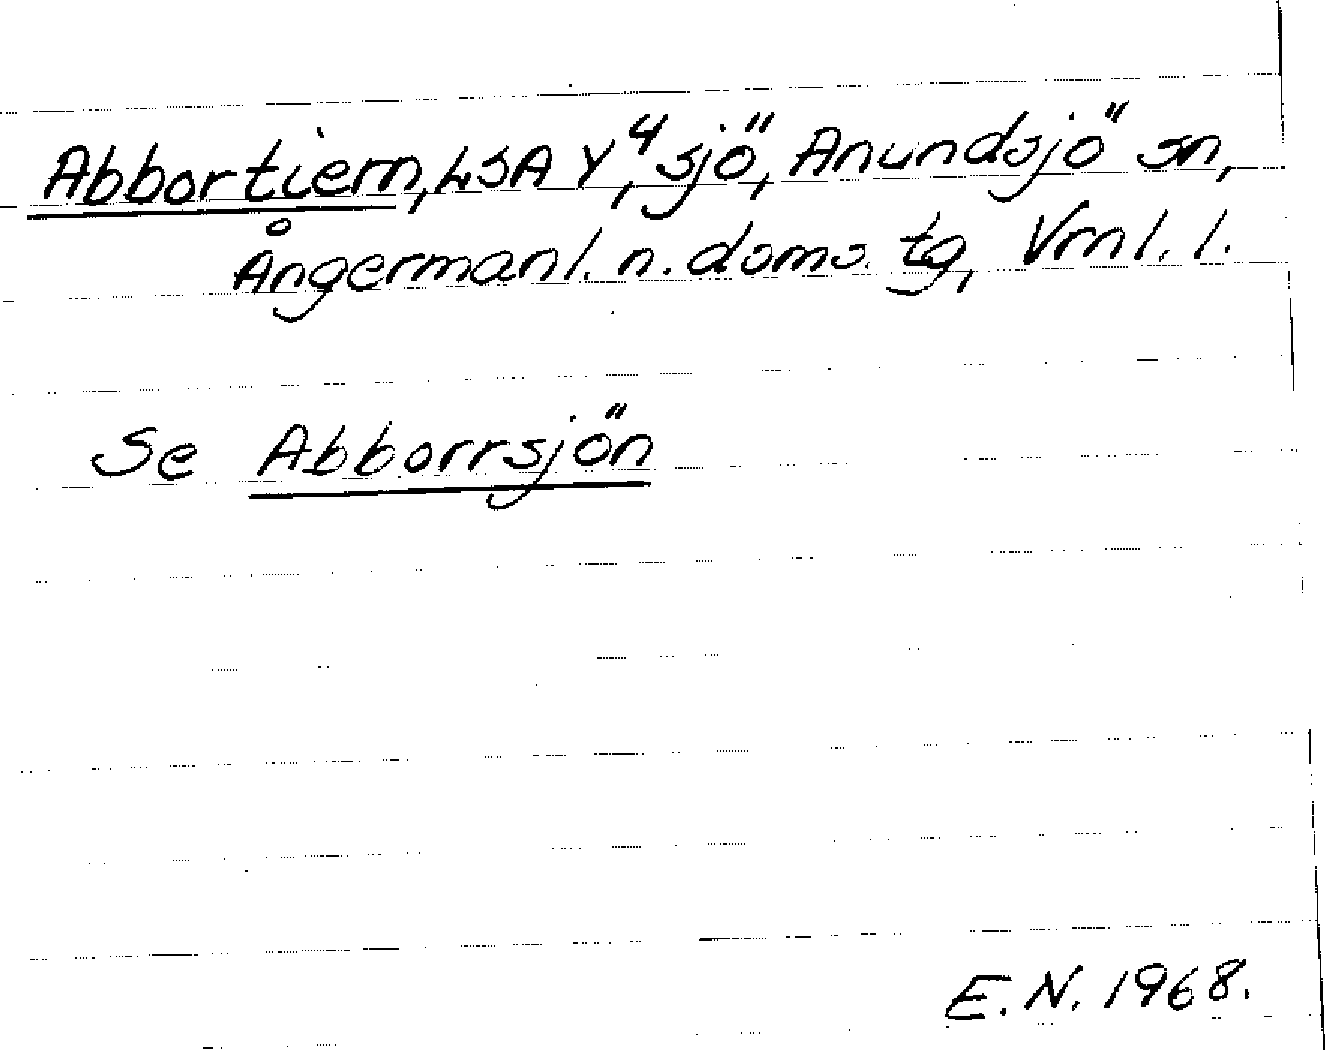 Abbortiern, LSA Y⁴, sjö, Anundsjö sn,
Ångermanl. n. doms. tg, Vrnl. l.
Se Abborrsjön
E.N. 1968.